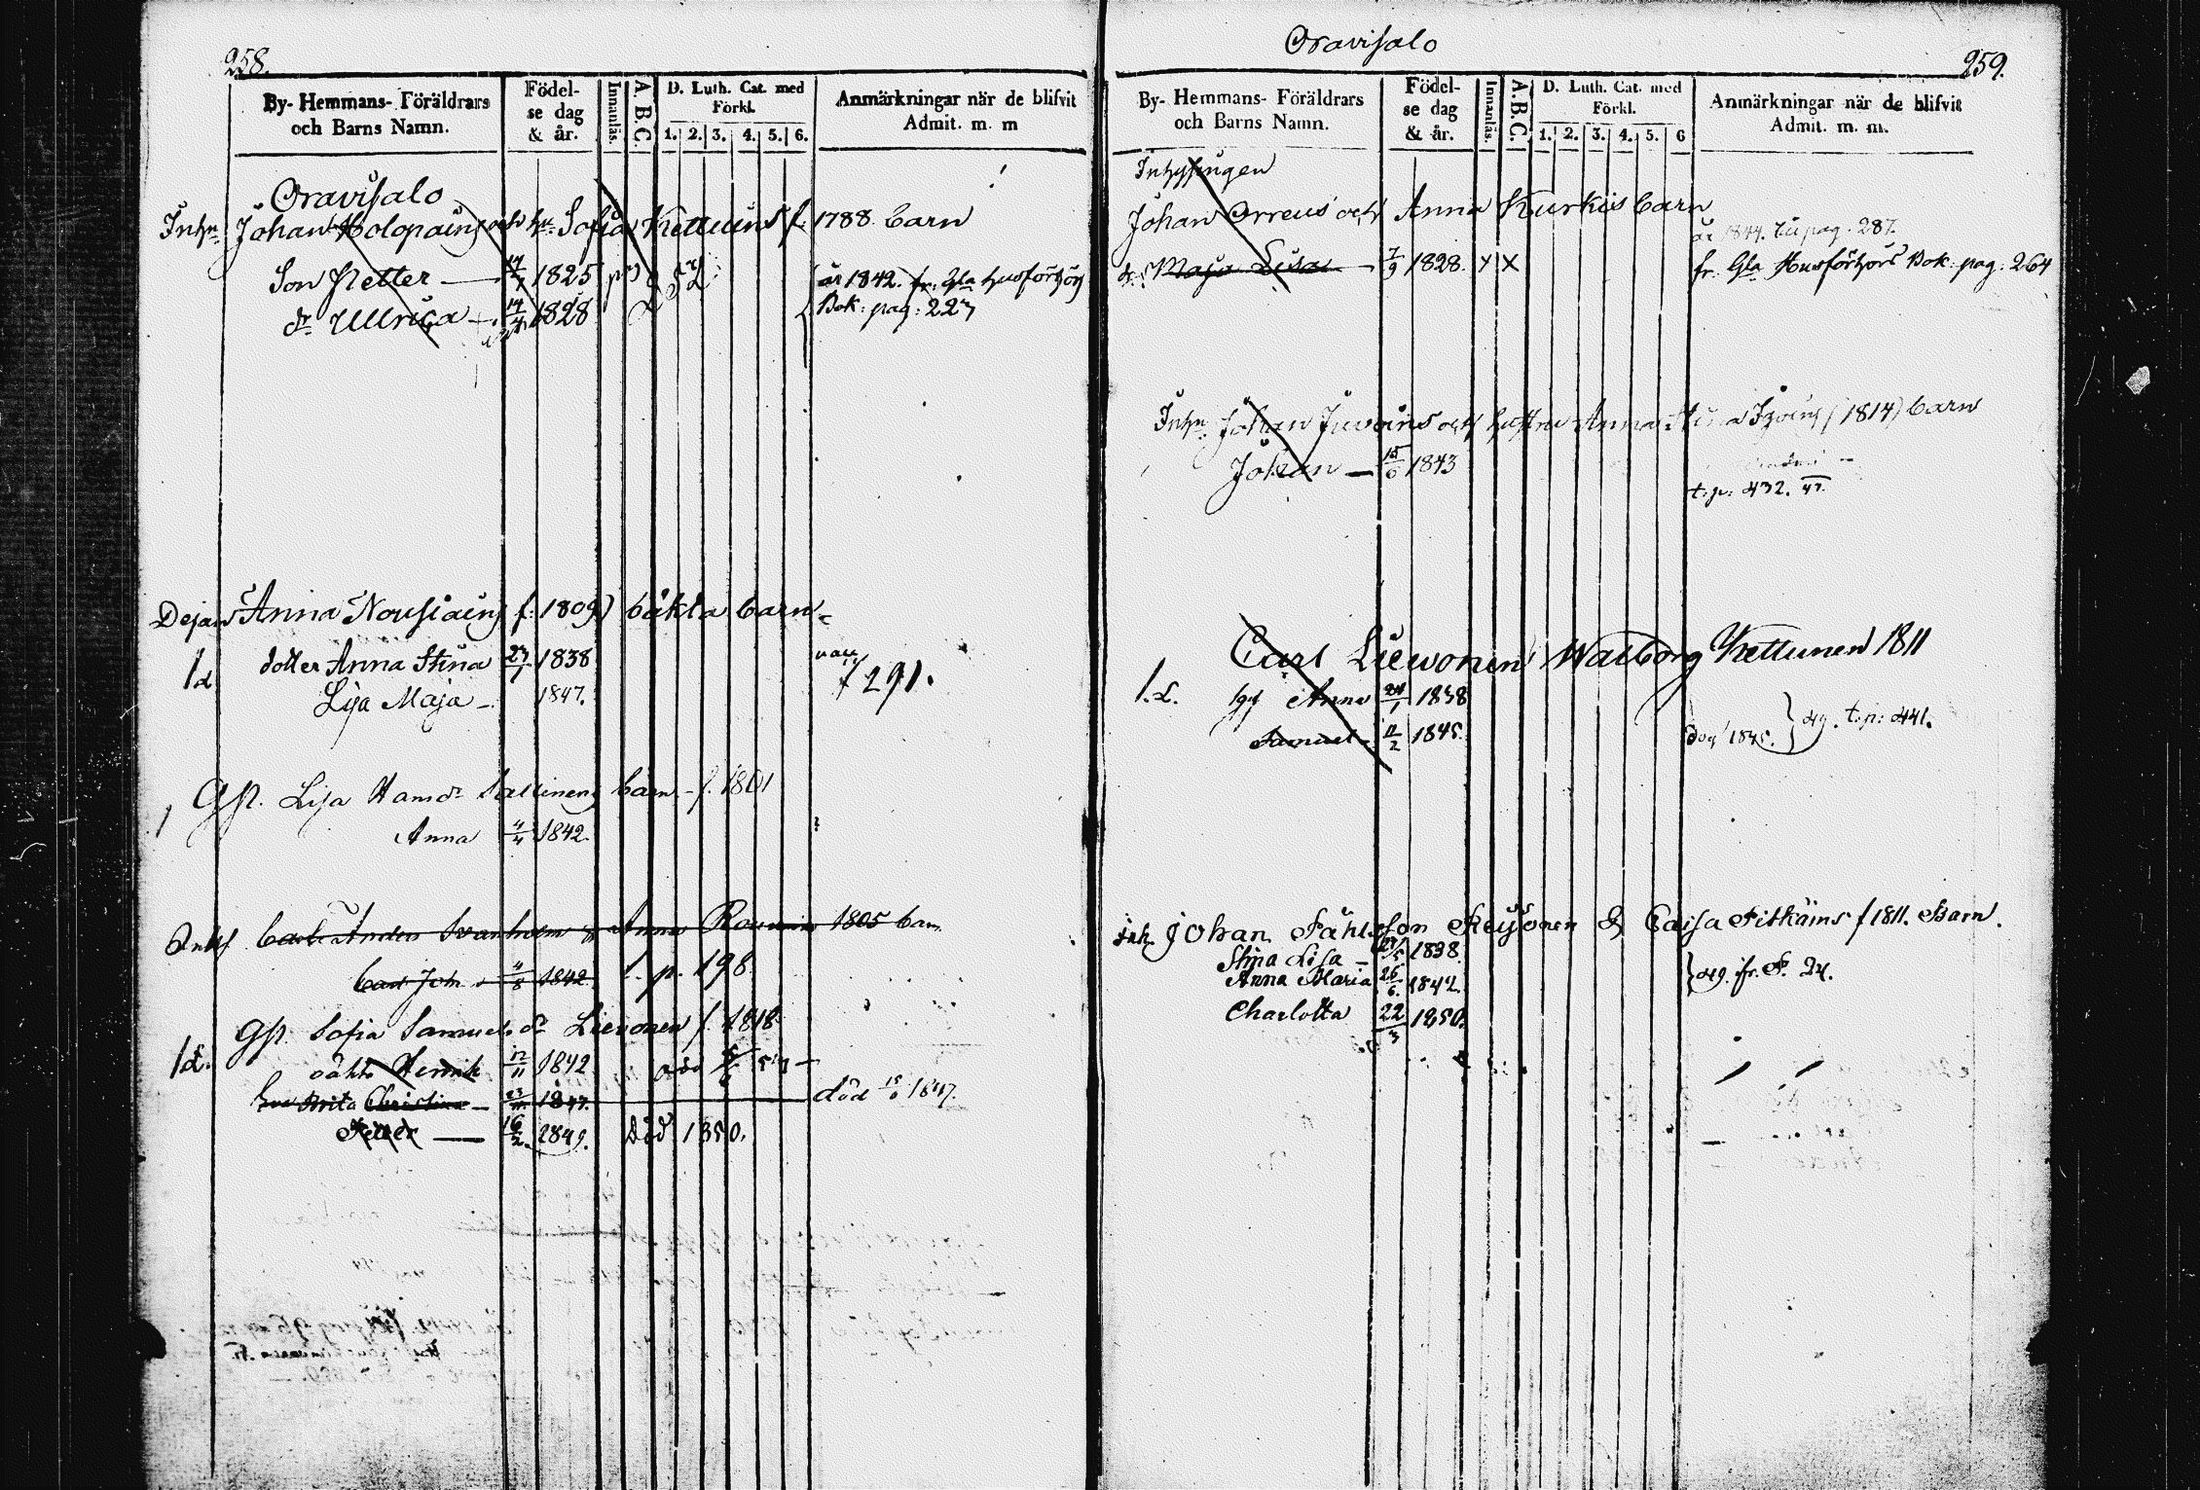 258.
By- Hemmans- Föräldrars och Barns Namn.
Födel-se dag & år.
Innanläs.
A. B. C.
D. Luth. Cat. med Förkl.
1. 2. 3. 4. 5. 6.
Anmärkningar när de blifvit Admit. m. m
Oravisalo
Inhn Johan Holopain och hu Sofia Kettuins f. 1788 barn
Son Petter — 1825
dr Ullrica — 14/4 1828
år 1842. fr. Gla husförhörs
Bok: pag: 227
Dejan Anna Nousiains f. 1809) oäkta barn
1d dotter Anna Stina 1838
Lisa Maja — 1847.
f 291.
Gst. Lisa Hansdr barn - f. 1801
Anna 4/4 1842.
Inhs Anders Svanholm & Anna 1805 barn
Carl Joh 4/8 1842 t. p. 198
Gst. Sofia Samuels dr Lievonen f. 1818
oäkta Henrik 12/11 1842
Brita Christina — 1847. död 15/6 1847.
Petter — 16/2 1849. Död 1850.
Oravisalo
259.
By- Hemmans- Föräldrars och Barns Namn.
Födel-se dag & år.
Innanläs.
A. B. C.
D. Luth. Cat. med Förkl.
1. 2. 3. 4. 5. 6
Anmärkningar när de blifvit Admit. m. m.
Inhysingen
Johan Orreus och Anna Kurkis barn
år 1844. till pag. 287.
dr. Maja Lisa — 7/9 1828. x x fr. Gla Husförhörs Bok: pag: 264
Inhn Johan och hustru Anna Stina (1814) barn
Johan — 15/6 1843
t. p: 432. 47.
Carl Liewonen Walborg Kettunen 1811
1.d. Anna 24/1 1838
Samuel — 11/2 1845. död 1845. } 49. t. p: 441.
inh. Johan Påhlsson & Caisa Pitkäins f 1811. Barn.
Stina Lisa — 1838.
Anna Maria 26/6. 1842. } 49. fr. P. 24.
Charlotta 22/3 1850.